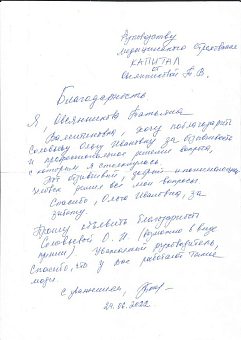 Руководству
медицинского страхования
КАПИТАЛ
от
Овсянниковой Т.В.
Благодарность
Я, Овсянникова Татьяна
Валентиновна, хочу поблагодарить
Соловьеву Ольгу Ивановну за отзывчивость
и профессиональное решение вопроса,
с которым я столкнулась.
Это отзывчивый, добрый и понимающий
человек решил все мои вопросы.
Спасибо, Ольга Ивановна, за
заботу.
Прошу объявить благодарность
Соловьевой О. И. (возможно в виде
премии). Уважаемый руководитель,
Спасибо, что у вас работают такие
люди
с уважением,
24.06.2022